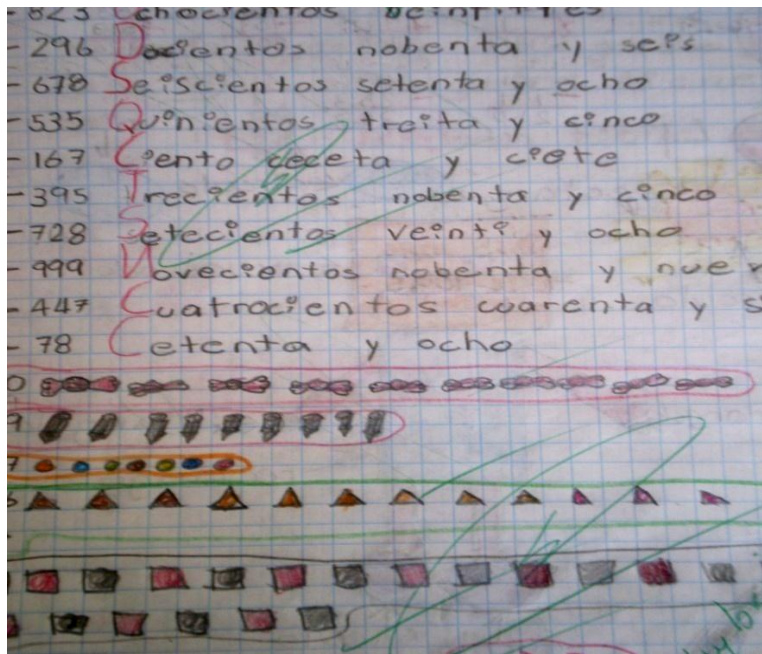 - 823 Ochocientos beintitres
- 296 Docientos nobenta y seis
- 678 Seiscientos setenta y ocho
- 535 Quinientos treita y cinco
- 167 Ciento ceceta y ciete
- 395 Trecientos nobenta y cinco
- 728 Setecientos veinti y ocho
- 999 Novecientos nobenta y nue
- 447 Cuatrocientos cuarenta y s
- 78 Cetenta y ocho
0
9
7